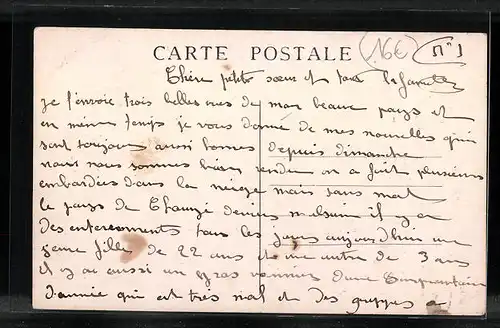 CARTE POSTALE
16€
N°1
Chère petite sœur et toute la famille
je t'envoie trois belles vues de mon beau pays et
en même temps je vous donne de mes nouvelles qui
sont toujours aussi bonnes depuis dimanche
nous nous sommes bien rendu on a fait plusieurs
embardées dans la neige mais sans mal
le pays de devient malsain il y a
des enterrements tous les jours aujourd'hui une
jeune fille de 22 ans et une autre de 3 ans
il y a aussi un gros d'une cinquantaine
d'année qui est très mal et des grippes a